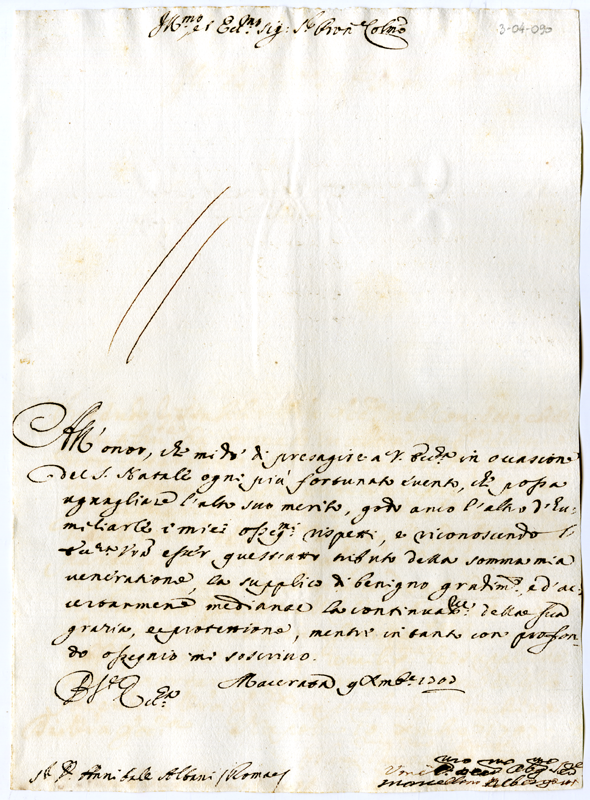 Ill.mo et Ecc.mo Sig: S.r Pron Colmo
3-04-090
All'onor, che mi dò di presagire a V. Ecc.za in occasione
del S. Natale ogni più fortunato evento, che possa
uguagliare l'alto suo merito, godo anco l'altro d'hu-
miliarle i miei osseq.mi rispetti, e riconoscendo
esser quest'atto tributo della somma mia
veneratione, la supplico di benigno gradim.to, e d'ac-
certarmene mediante la continuat.ne della sua
gratia, e protettione, mentre intanto con profon-
do ossequio mi soscrivo.
Macerata 9 Xmbre 1703
S.r D. Annibale Albani Roma